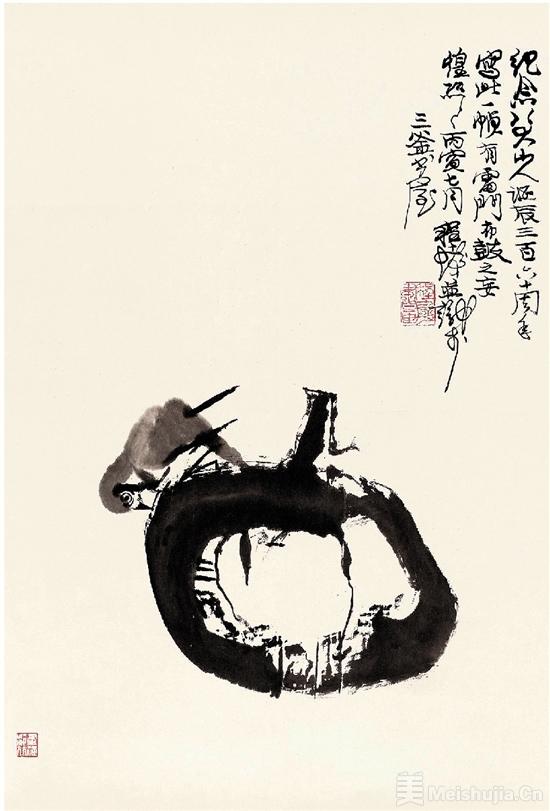 纪念八大山人诞辰三百六十周年
寫此一帧有雷門布鼓之妄
惶恐々丙寅七月程十髮並識於
三釜书屋
美 Meishujia.Cn